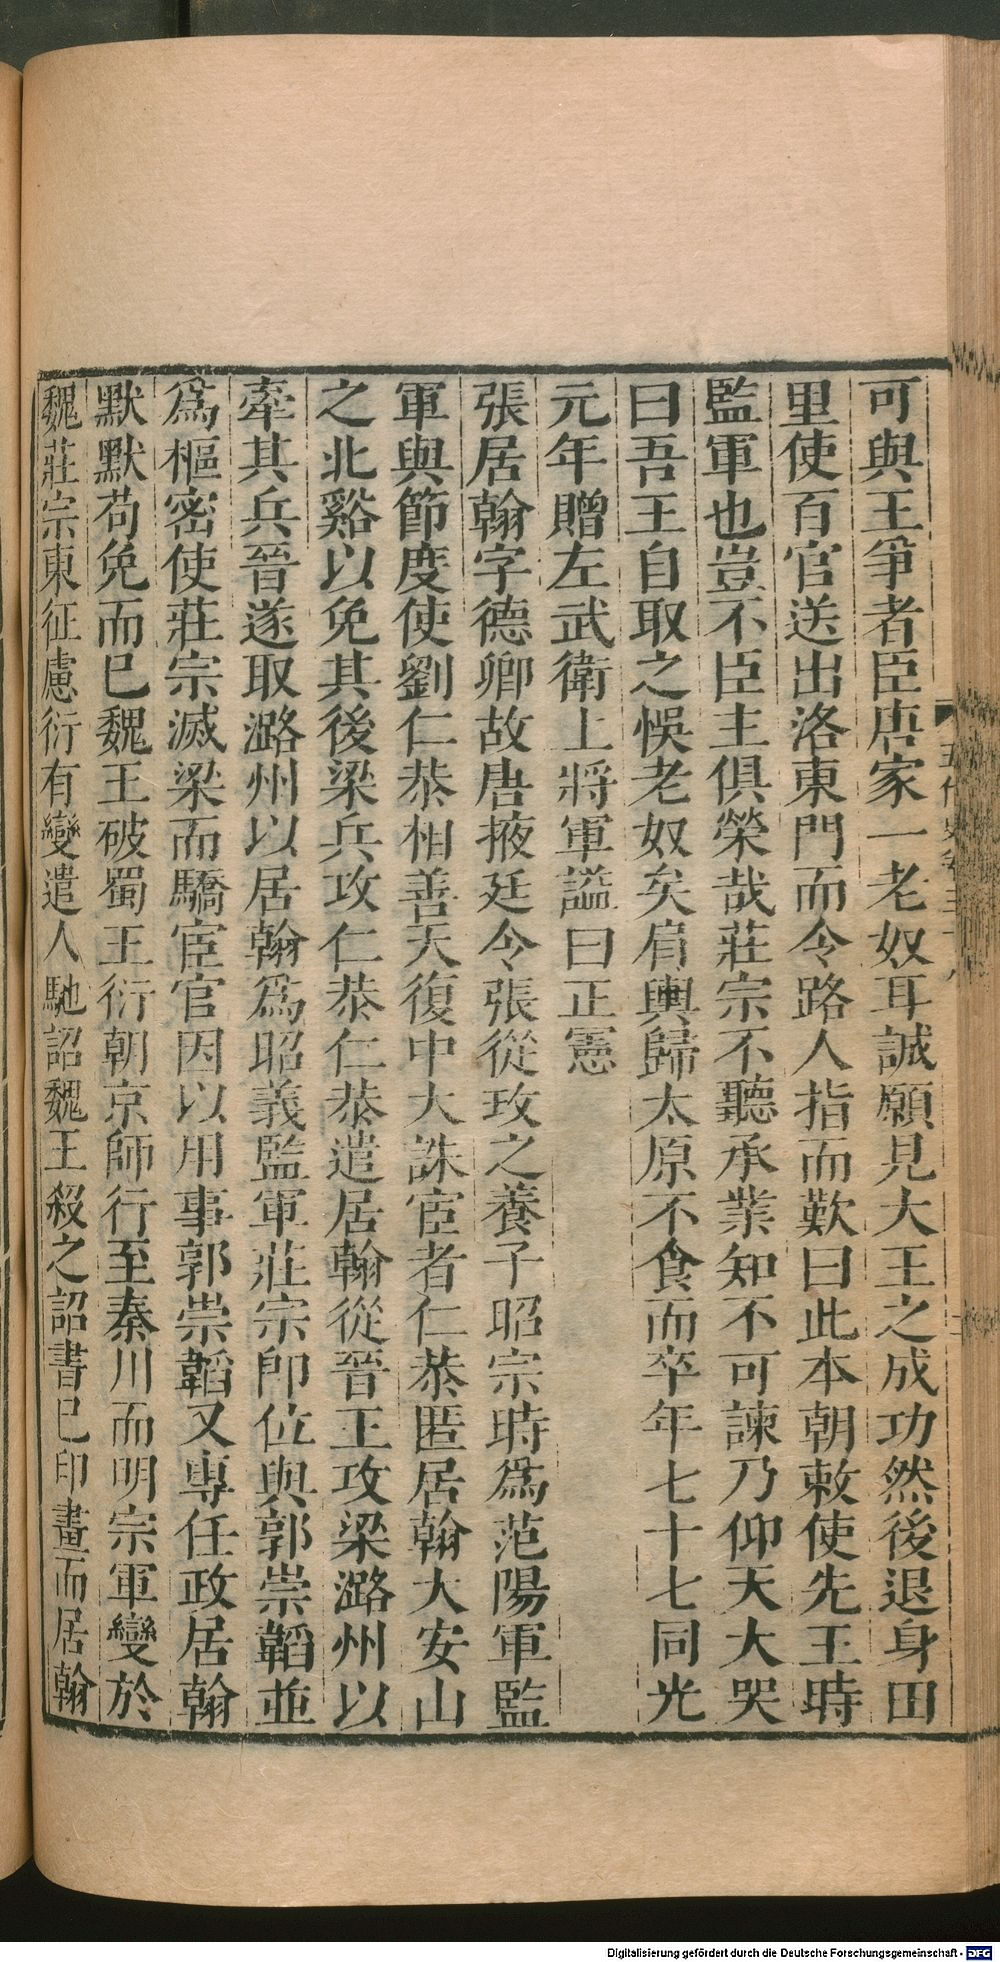 可與王爭者臣唐家一老奴耳誠願見大王之成功然後退身田
里使百官送出洛東門而令路人指而歎曰此本朝敕使先王時
監軍也豈不臣主俱榮哉莊宗不聽承業知不可諫乃仰天大哭
曰吾王自取之悞老奴矣肩輿歸太原不食而卒年七十七同光
元年贈左武衛上將軍謚曰正憲
張居翰字德卿故唐掖廷令張從玫之養子昭宗時爲范陽軍監
軍與節度使劉仁恭相善天復中大誅宦者仁恭匿居翰大安山
之北谿以免其後梁兵攻仁恭仁恭遣居翰從晉王攻梁潞州以
牽其兵晉遂取潞州以居翰爲昭義監軍莊宗即位與郭崇韜並
爲樞密使莊宗滅梁而驕宦官因以用事郭崇韜又專任政居翰
默默苟免而已魏王破蜀王衍朝京師行至秦川而明宗軍變於
魏莊宗東征慮衍有變遣人馳詔魏王殺之詔書已印畫而居翰
Digitalisierung gefördert durch die Deutsche Forschungsgemeinschaft - DFG